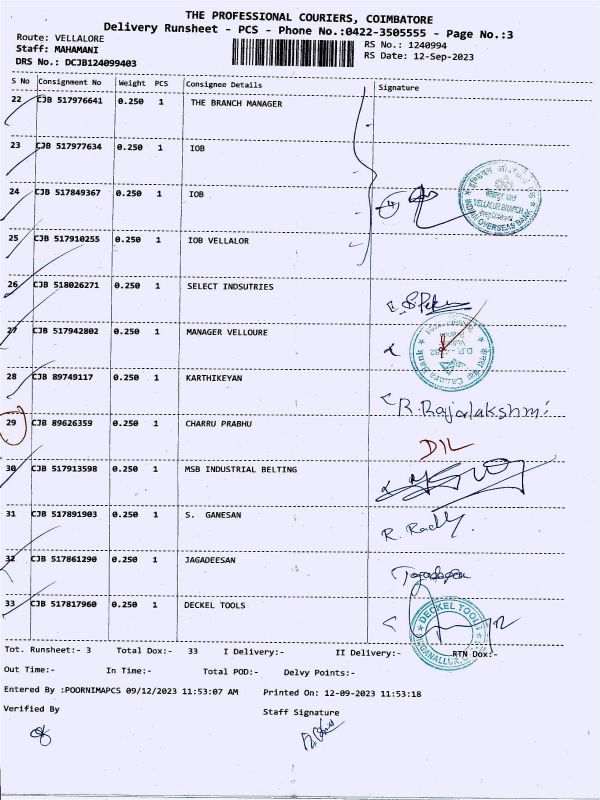 THE PROFESSIONAL COURIERS, COIMBATORE
Delivery Runsheet - PCS - Phone No.:0422-3505555 - Page No.:3
Route: VELLALORE
RS No.: 1240994
Staff: MAHAMANI
RS Date: 12-Sep-2023
DRS No.: DCJB124099403
S No Consignment No Weight PCS Consignee Details Signature
22 CJB 517976641 0.250 1 THE BRANCH MANAGER
23 CJB 517977634 0.250 1 IOB
24 CJB 517849367 0.250 1 IOB
VELLALUR BRANCH
INDIAN OVERSEAS BANK
25 CJB 517910255 0.250 1 IOB VELLALOR
26 CJB 518026271 0.250 1 SELECT INDSUTRIES
27 CJB 517942802 0.250 1 MANAGER VELLOURE
Canara Bank
28 CJB 89749117 0.250 1 KARTHIKEYAN
R. Rajalakshmi
29 CJB 89626359 0.250 1 CHARRU PRABHU
DIL
30 CJB 517913598 0.250 1 MSB INDUSTRIAL BELTING
31 CJB 517891903 0.250 1 S. GANESAN
32 CJB 517861290 0.250 1 JAGADEESAN
33 CJB 517817960 0.250 1 DECKEL TOOLS
DECKEL TOOLS
Tot. Runsheet:- 3 Total Dox:- 33 I Delivery:- II Delivery:- RTN Dox:-
Out Time:- In Time:- Total POD:- Delvy Points:-
Entered By :POORNIMAPCS 09/12/2023 11:53:07 AM Printed On: 12-09-2023 11:53:18
Verified By Staff Signature